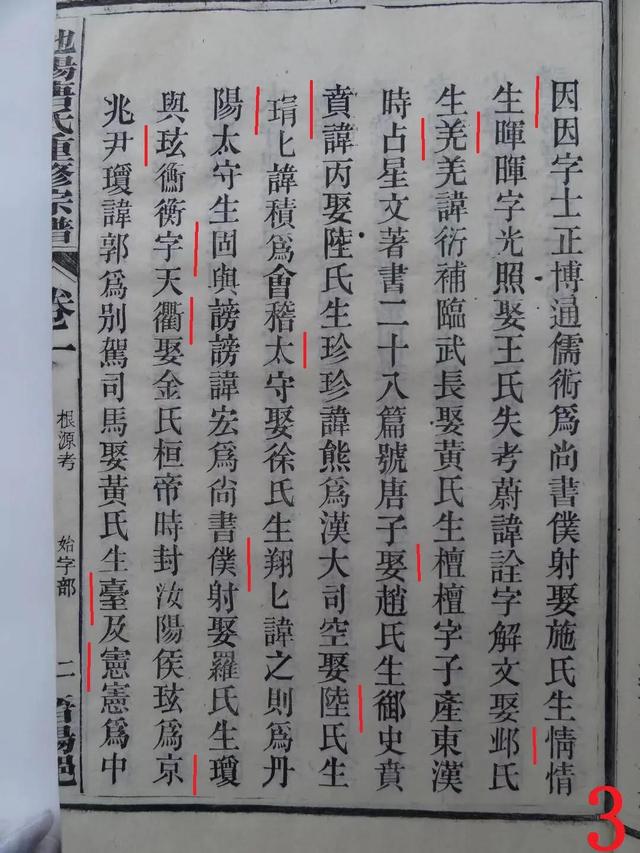 因因字士正博通儒術爲尚書僕射娶施氏生情情
生暉暉字光照娶王氏失考蔚諱詮字解文娶邺氏
生羌羌諱衍補臨武長娶黃氏生檀檀字子產東漢
時占星文著書二十八篇號唐子娶趙氏生御史賁
賁諱丙娶陸氏生珍珍諱熊爲漢大司空娶陸氏生
琄匕諱積爲會稽太守娶徐氏生翔匕諱之則爲丹
陽太守生固與謗謗諱宏爲尚書僕射娶羅氏生瓊
與玹衡衡字天衢娶金氏桓帝時封汝陽侯玹爲京
兆尹瓊諱郭爲别駕司馬娶黃氏生臺及憲憲爲中
池陽唐氏重修宗譜
卷一
根源考
始字部
二
晉陽邑
3